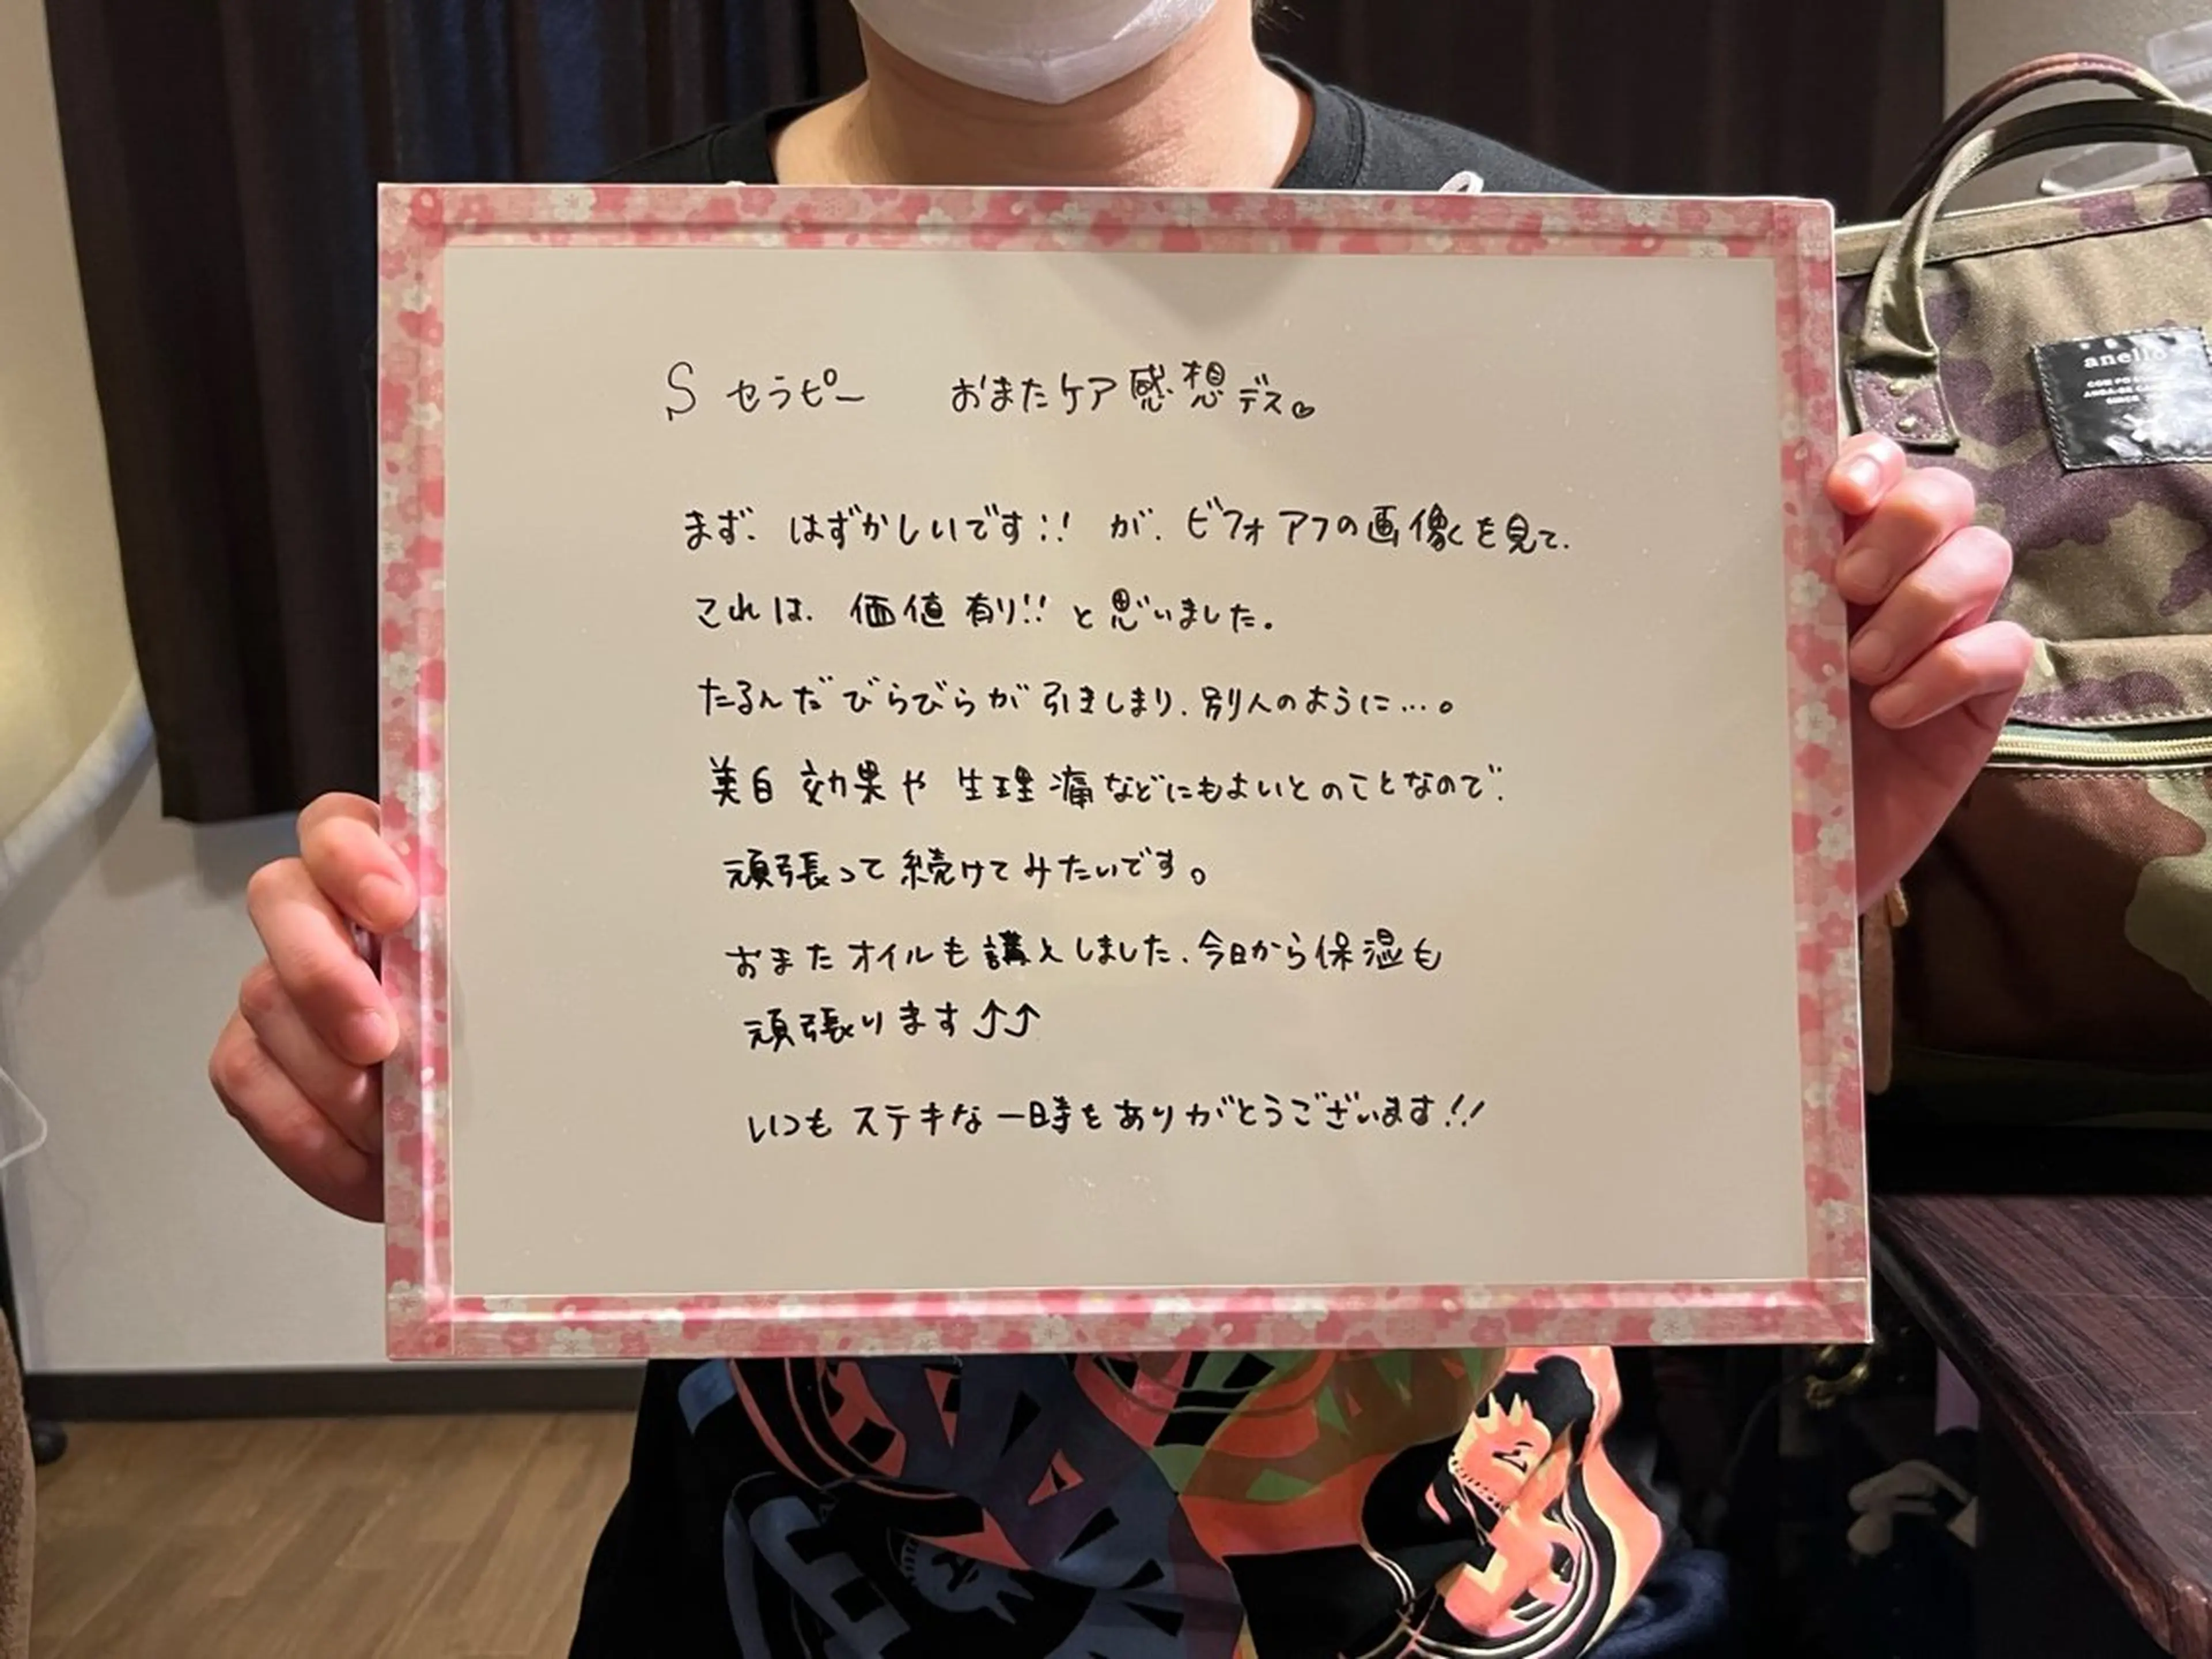 S セラピー おまたケア感想デス。
まず、はずかしいです!! が、ビフォアフの画像を見て、
これは、価値有り!! と思いました。
たるんだびらびらが引きしまり、別人のように…。
美白効果や生理痛などにもよいとのことなので、
頑張って続けてみたいです。
おまたオイルも購入しました、今日から保湿も
頑張ります⤴⤴
いつもステキな一時をありがとうございます!!
anello